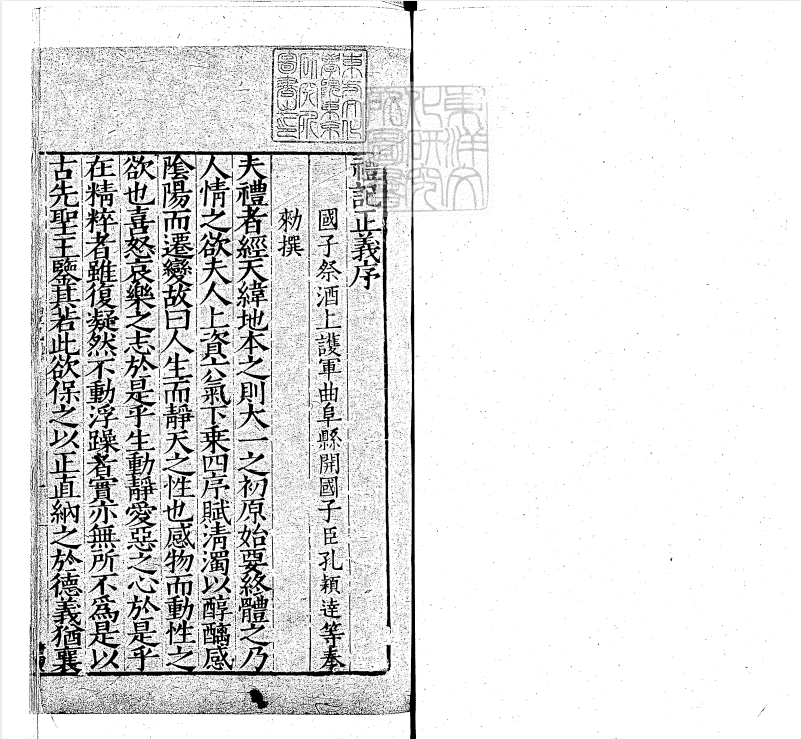 禮記正義序
國子祭酒上護軍曲阜縣開國子臣孔穎達等奉
勑撰
夫禮者經天緯地本之則大一之初原始要終體之乃
人情之欲夫人上資六氣下乗四序賦清濁以醇醨感
隂陽而遷變故曰人生而靜天之性也感物而動性之
欲也喜怒哀樂之志於是乎生動靜愛惡之心於是乎
在精粹者雖復凝然不動浮躁者實亦無所不爲是以
古先聖王鑒其若此欲保之以正直納之於德義猶襄
東方文化
學院東京
研究所
圖書之印